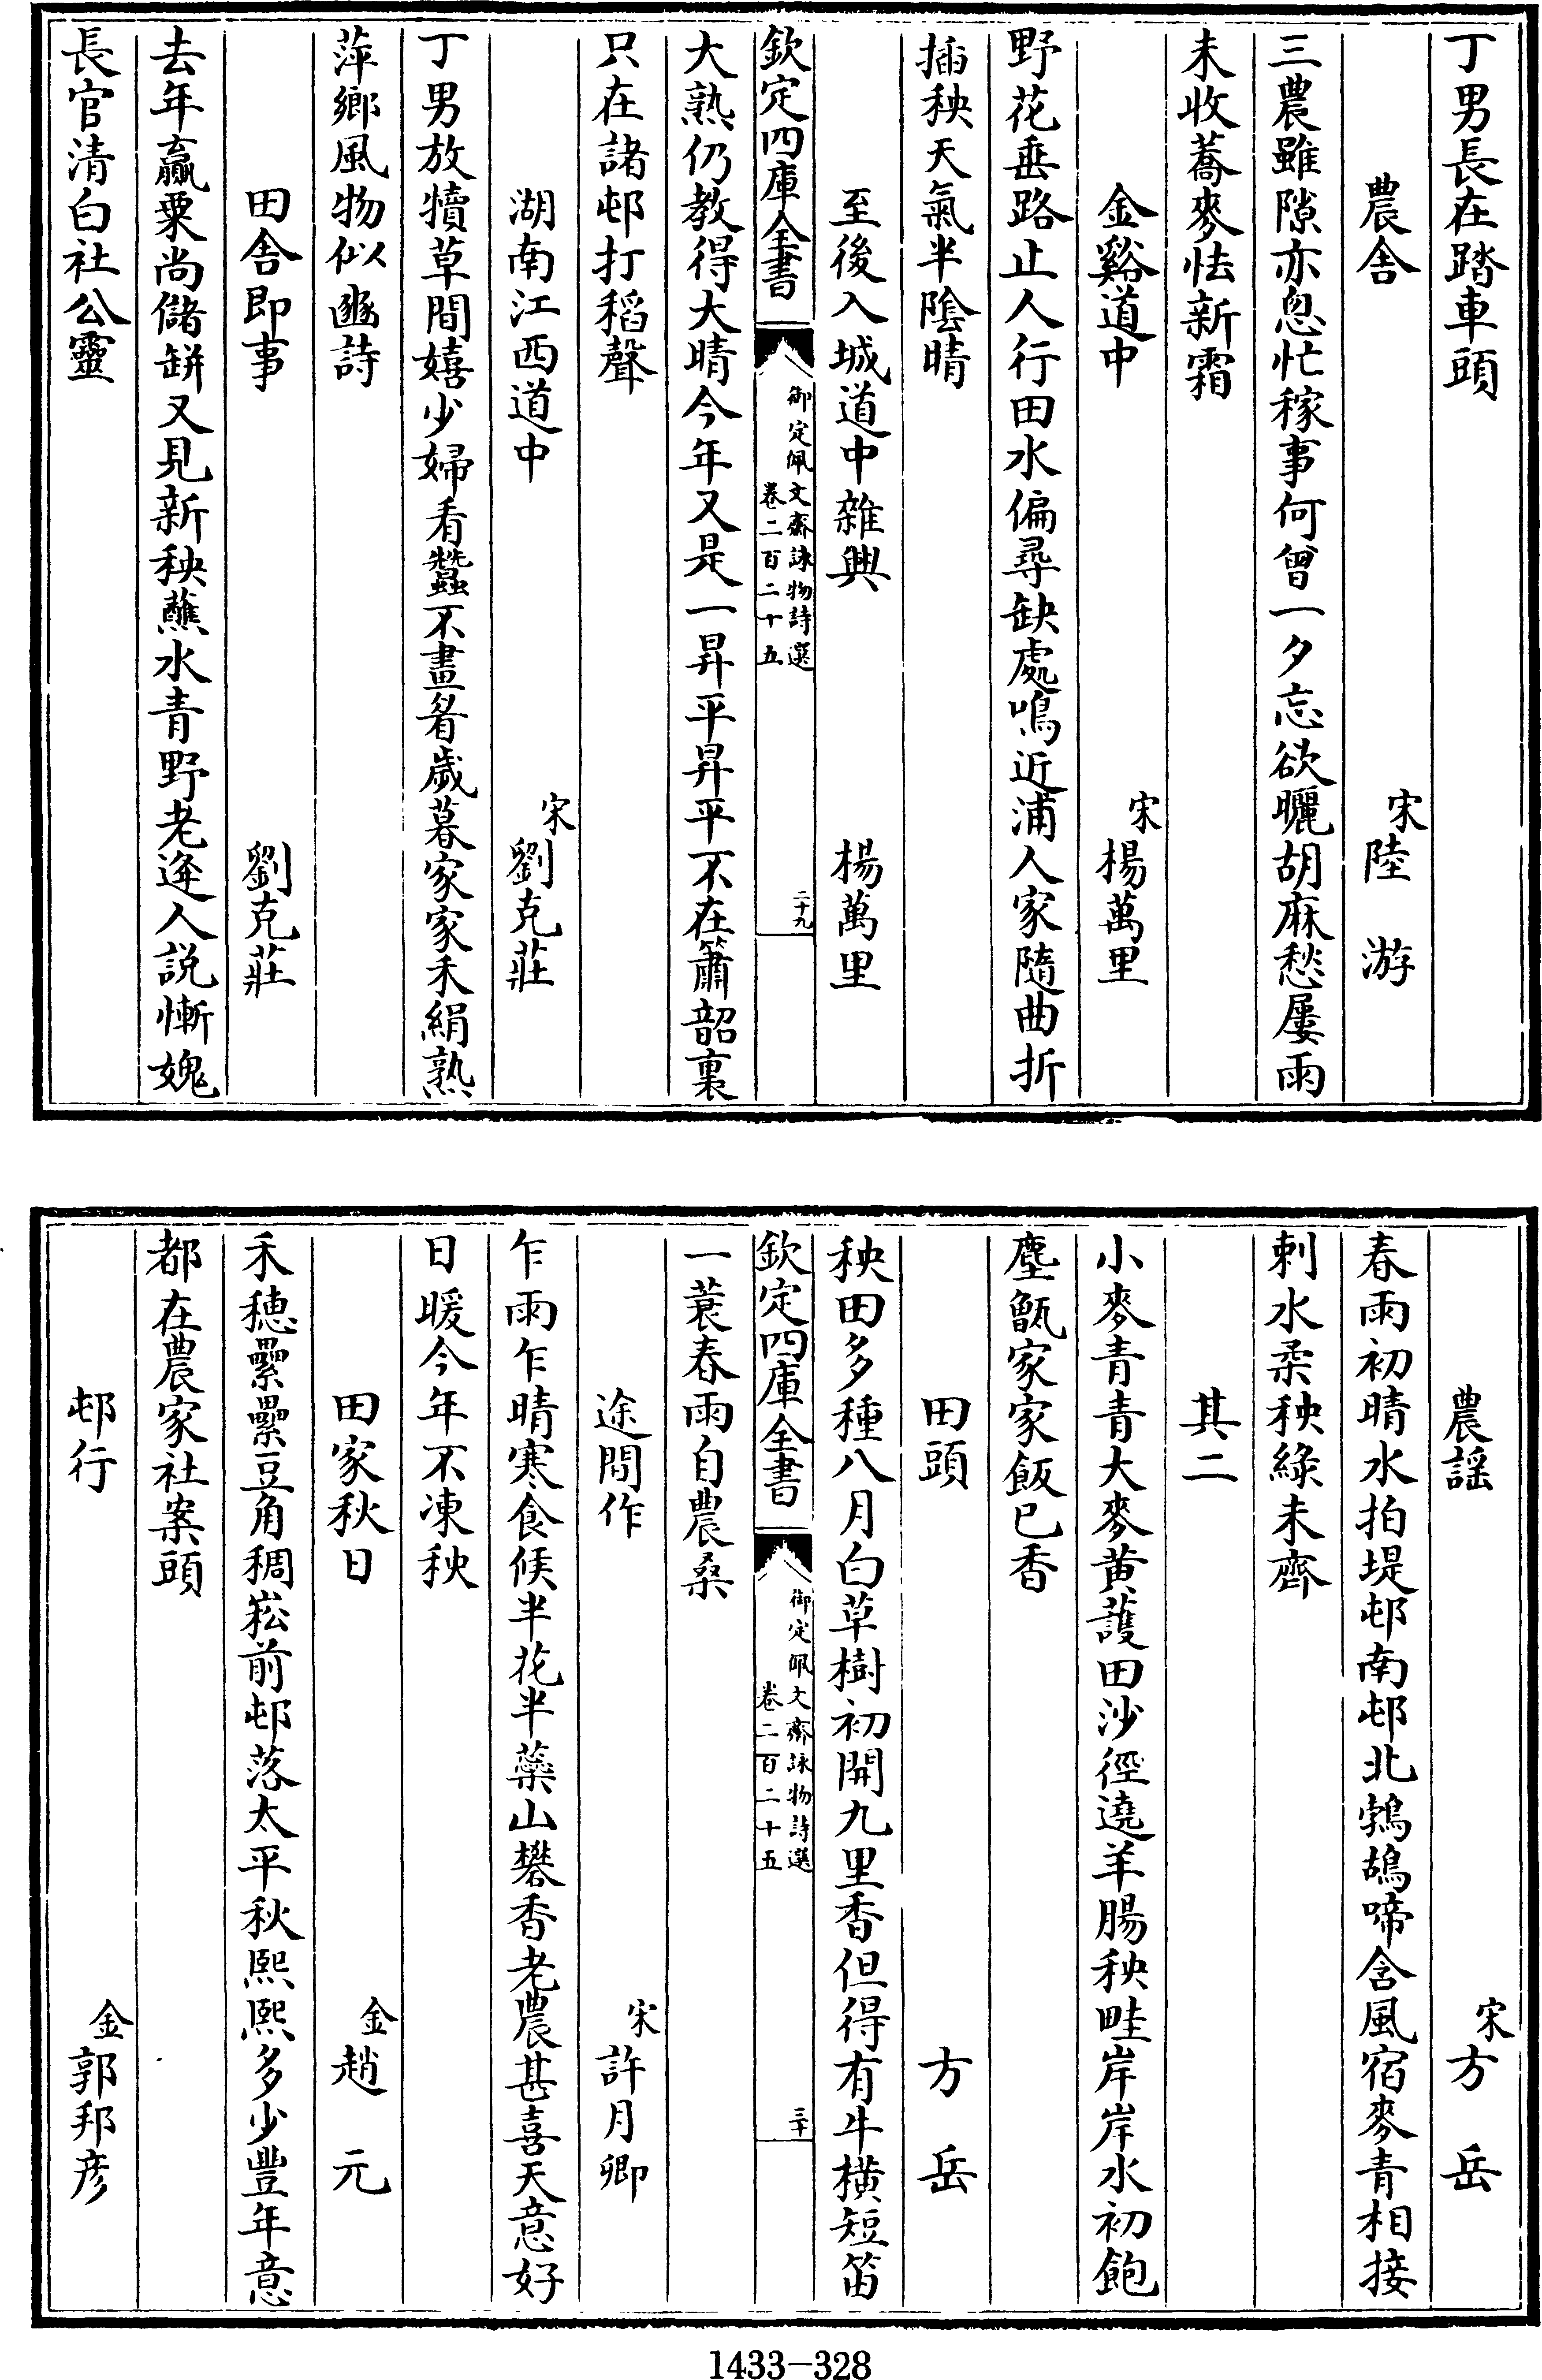 丁男長在踏車頭
農舍　宋陸　游
三農雖隙亦怱忙稼事何曾一夕忘欲曬胡麻愁屢雨
未收蕎麥怯新霜
金谿道中　宋楊萬里
野花垂路止人行田水偏尋缺處鳴近浦人家隨曲折
插秧天氣半陰晴
至後入城道中雜興　楊萬里
欽定四庫全書
御定佩文齋詠物詩選
卷二百二十五
二十九
大熟仍教得大晴今年又是一昇平昇平不在簫韶裏
只在諸邨打稻聲
湖南江西道中　宋劉克莊
丁男放犢草間嬉少婦看蠶不畫眉歲暮家家禾絹熟
萍鄉風物似豳詩
田舍即事　劉克莊
去年羸粟尚儲缾又見新秧蘸水青野老逢人説慚媿
長官清白社公靈
農謡　宋方　岳
春雨初晴水拍堤邨南邨北鵓鴣啼含風宿麥青相接
刺水柔秧綠未齊
其二
小麥青青大麥黄䕶田沙徑遶羊腸秧畦岸岸水初飽
塵甑家家飯已香
田頭　方　岳
秧田多種八月白草樹初開九里香但得有牛橫短笛
欽定四庫全書
御定佩文齋詠物詩選
卷二百二十五
三十
一蓑春雨自農桑
途間作　宋許月卿
乍雨乍晴寒食候半花半藥山礬香老農甚喜天意好
日暖今年不凍秧
田家秋日　金趙　元
禾穗纍纍豆角稠崧前邨落太平秋熙熙多少豐年意
都在農家社案頭
邨行　金郭邦彦
1433-328